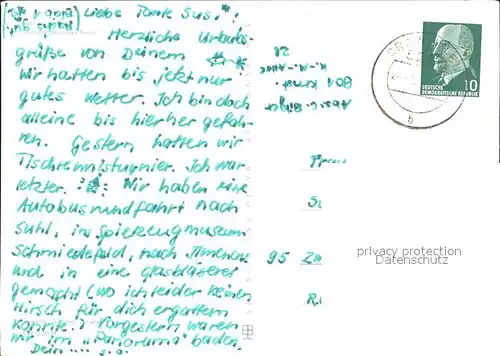 Liebe Tante Susi!
Herzliche Urlaubs-
grüße von Deinem
Wir hatten bis jetzt nur
gutes Wetter. Ich bin doch
alleine bis hierher gefah-
ren. Gestern hatten wir
Tischtennisturnier. Ich war
letzter. Wir haben eine
Autobusrundfahrt nach
Suhl, ins Spielzeugmuseum
Schmiedefeld, nach Ilmenau
und in eine Glasbläserei
gemacht (wo ich leider keinen
Hirsch für dich ergattern
konnte). Vorgestern waren
wir im "Panorama" baden.
Dein s.o.
801
28
95 Zw
privacy protection
Datenschutz
10
DEUTSCHE
DEMOKRATISCHE REPUBLIK
b